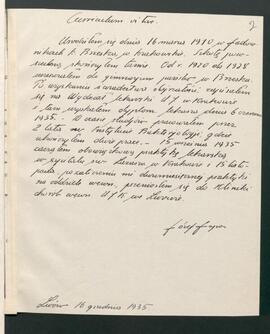 2
Curriculum vitae.
Urodziłem się dnia 16 marca 1910 w
k. Brzeska, w Krakowskie. Szkołę pow-
szechną skończyłem tamże. Od r. 1920 do 1928
uczęszczałem do gimnazjum w Brzesku
Po uzyskaniu świadectwa dojrzałości, zapisałem
się na Wydział lekarski UJ w Krakowie
tam uzyskałem dyplom lekarza dnia 6 czerwca
1935. W czasie studjów pracowałem przez
2 lata w Instytucie Bakterjologji, gdzie
ukończyłem dwie prace. 15 września 1935
zacząłem obowiązkową praktykę lekarską
w szpitalu św. Łazarza w Krakowie i 15 listo-
pada, po na
oddziale wewn., przeniosłem się do Kliniki
chorób wewn. UJK we Lwowie.
Józef
Lwów 16 grudnia 1935